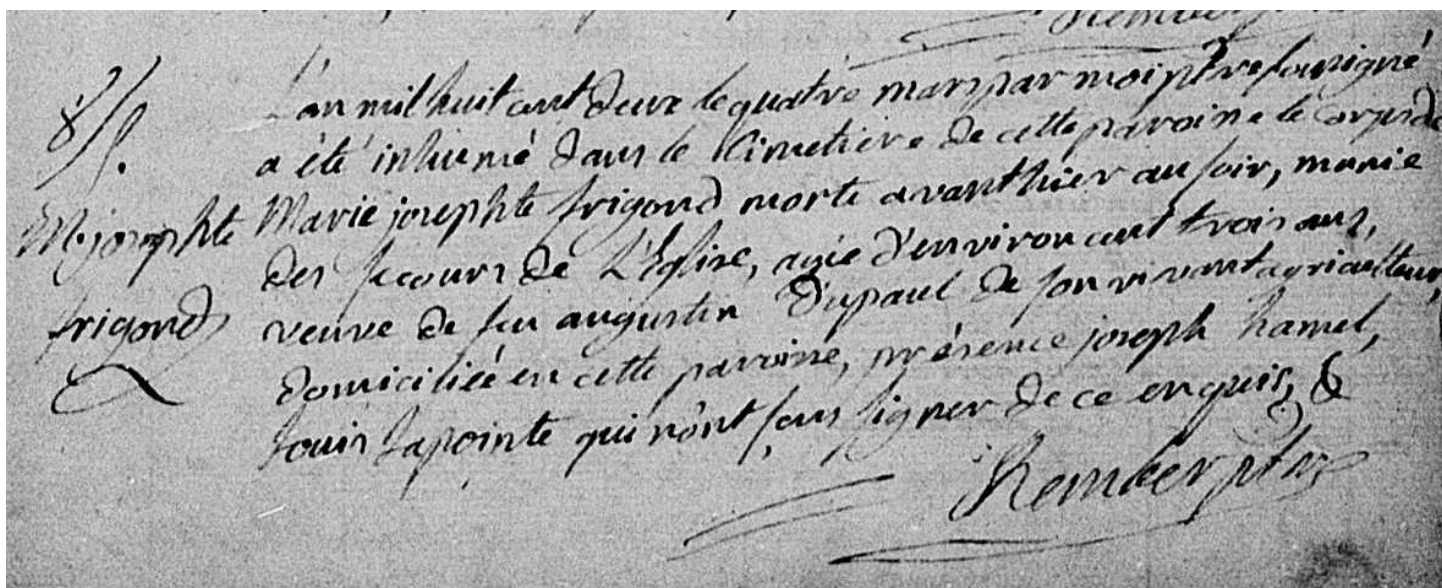 8/S.
M. josephte
frigond
L'an mil huit cent deux le quatre mars par moi ptre soussigné
a été inhumé dans le Cimetiere de cette paroisse le corps de
Marie josephte frigond morte avanthier au soir, munie
des secours de L'Eglise, agée d'environ cent trois ans,
veuve de feu augustin Dupaul de son vivant agriculteur,
domiciliée en cette paroisse, présence joseph hamel,
Louis Lapointe qui n'ont sçus signer de ce enquis, &
ptre